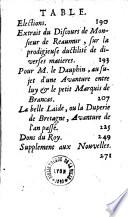 TABLE.
Elections. 190
Extrait du Discours de Mon-
sieur de Reaumur, sur la
prodigieuse ductilité de di-
verses matieres. 193
Pour M. le Dauphin, au su-
jet d'une Avanture entre
luy & le petit Marquis de
Brancas. 207
La belle Laide, ou la Duperie
de Bretagne, Avanture de
l'an passé. 225
Dons du Roy. 249
Supplement aux Nouvelles.
271